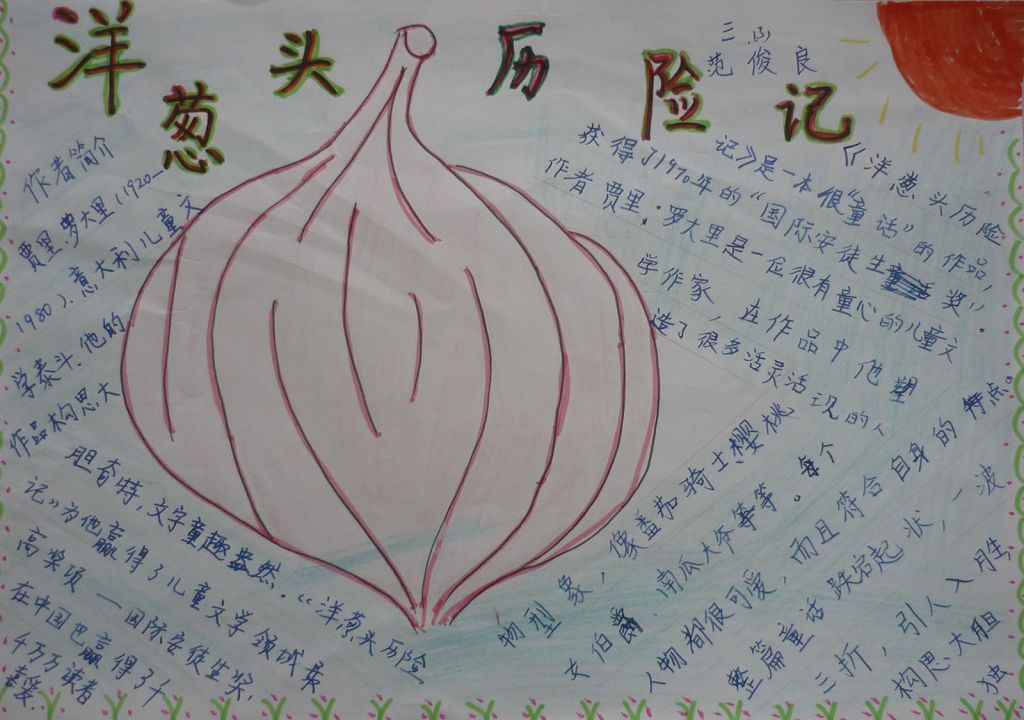 洋葱头历险记
三.(6)
范俊良
作者简介
贾里.罗大里(1920—
1980).意大利儿童文
学泰斗.他的
作品构思大
胆奇特,文字童趣盎然.《洋葱头历险
记》为他赢得了儿童文学领域最
高奖项—国际安徒生奖,
在中国也赢得了千
千万万读者
喜爱.
《洋葱头历险
记》是一本很“童话”的作品,
获得了1970年的“国际安徒生奖”.
作者贾里.罗大里是一位很有童心的儿童文
学作家,在作品中他塑
造了很多活灵活现的人
物型象,像番茄骑士、樱桃
女伯爵、南瓜大爷等等。每个
人物都很可爱,而且符合自身的特点。
整篇童话跌宕起状,一波
三折,引人入胜
构思大胆
独